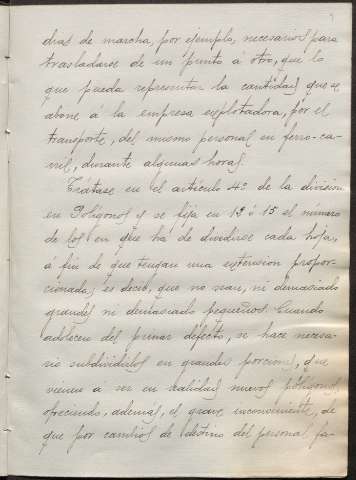 dias de marcha, por ejemplo, necesarios para
trasladarse de un punto á otro, que lo
que pueda representar la cantidad que se
abone á la empresa explotadora, por el
transporte, del mismo personal en ferro-ca-
rril, durante algunas horas.
Trátase en el artículo 4º de la división
en Polígonos y se fija en 12 ó 15 el número
de los en que ha de dividirse cada hoja,
á fin de que tengan una extension propor-
cionada; es decir, que no sean, ni demasiado
grandes ni demasiado pequeños. Cuando
adolecen del primer defecto, se hace necesa-
rio subdividirlos en grandes porciones, que
vienen á ser en realidad nuevos polígonos,
ofreciendo, además, el grave inconveniente, de
que por cambios de destino del personal fa-